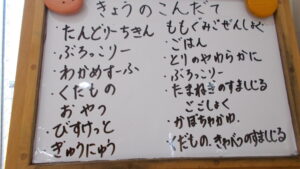 きょうのこんだて
・たんどりーちきん
・ぶろっこりー
・わかめすーぷ
・くだもの
おやつ
びすけっと
ぎゅうにゅう
ももぐみごぜんしょく
・ごはん
・とりのやわらかに
・ぶろっこりー
・たまねぎのすましじる
ごごしょく
・かぼちゃかゆ
・くだもの・きゃべつのすましじる